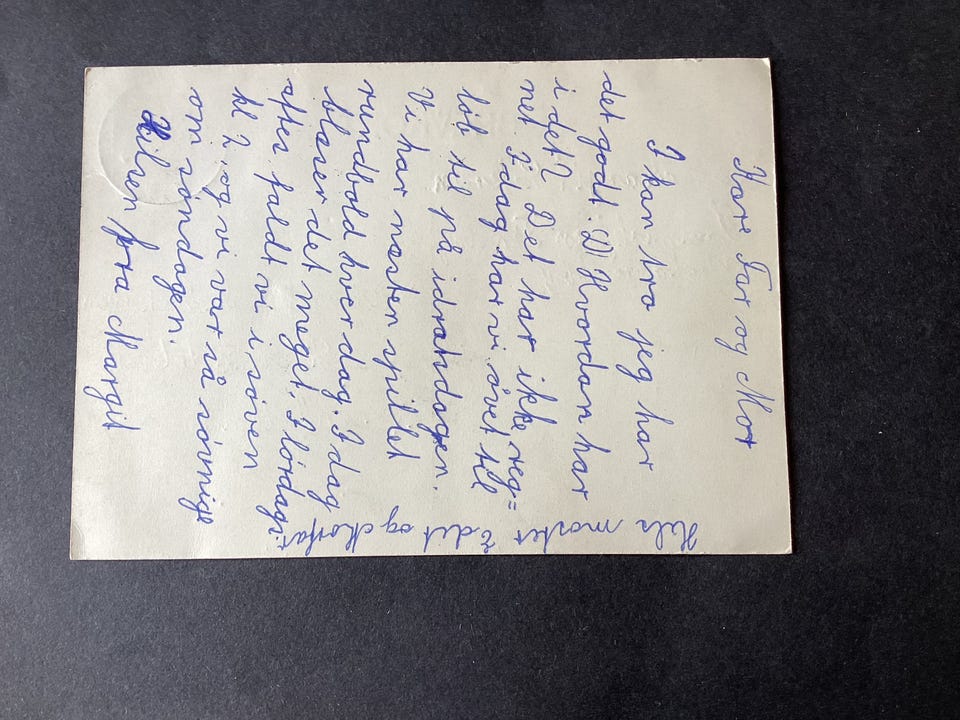 Kære Far og Mor
I kan tro jeg har
det godt. Hvordan har
i det? Det har ikke reg=
net I dag har vi øvet til
løb til på idrætsdagen.
Vi har næsten spillet
rundbold hver dag. I dag
blæser det meget. I lørdags
aften faldt vi i søven
kl 2, og vi var så søvnige
om søndagen.
Hilsen fra Margit
Hils moster
og Morfar